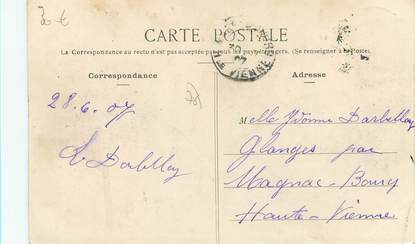 30 €
CARTE POSTALE
La Correspondance au recto n'est pas acceptée par tous les pays étrangers. (Se renseigner à la Poste).
Correspondance
Adresse
30
07
Hte VIENNE
28.6.07
Y. Darbellay
Melle Yvonne Darbellay
Glanges par
Magnac-Bourg
Haute-Vienne